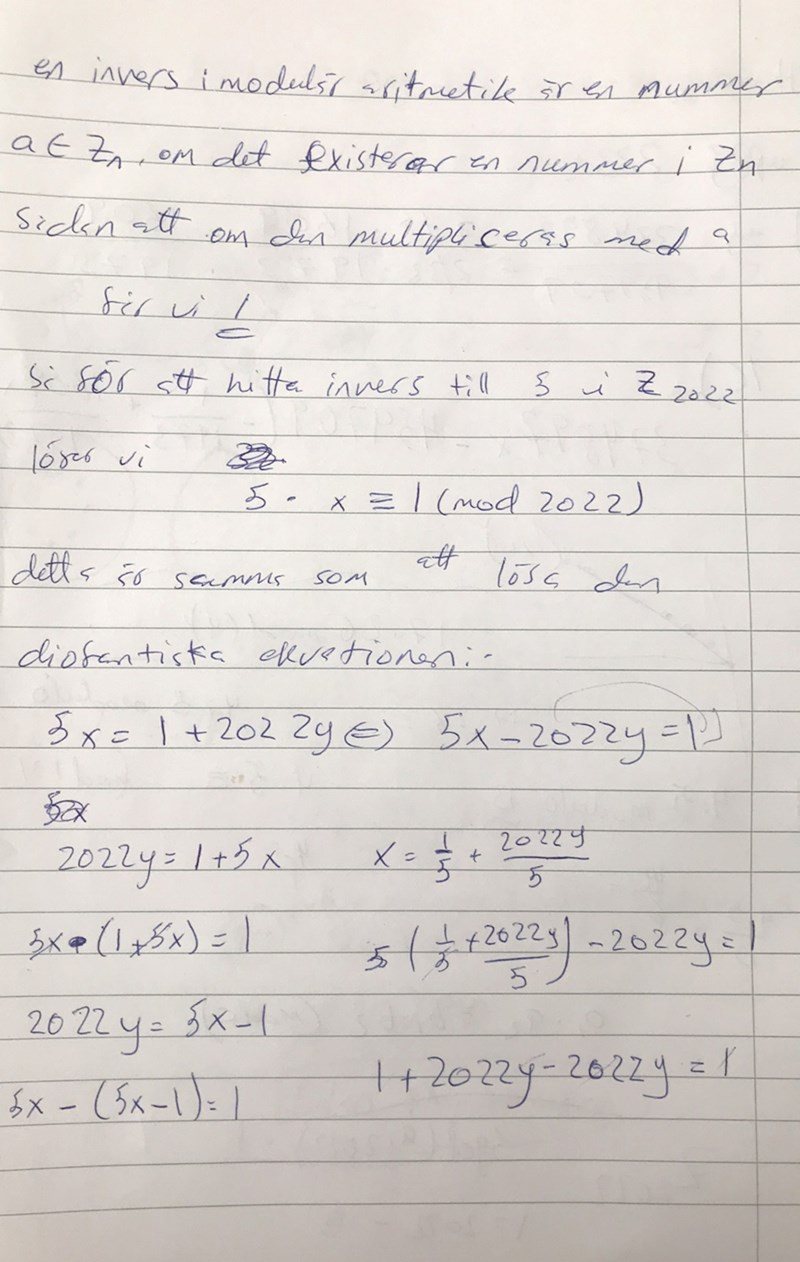 en invers i modulär aritmetik är en nummer
a ∈ Zn, om det existerar en nummer i Zn
sådan att om den multipliceras med a
får vi 1
så för att hitta invers till 5 i Z2022
löser vi
5 · x ≡ 1 (mod 2022)
detta är samma som att lösa den
diofantiska ekvationen:-
5x = 1 + 2022y ⇔ 5x - 2022y = 1
2022y = 1 + 5x x = 1/5 + 2022y/5
5x - (1 + 5x) = 1 5 (1/5 + 2022y/5) - 2022y = 1
2022y = 5x - 1
1 + 2022y - 2022y = 1
5x - (5x - 1) = 1